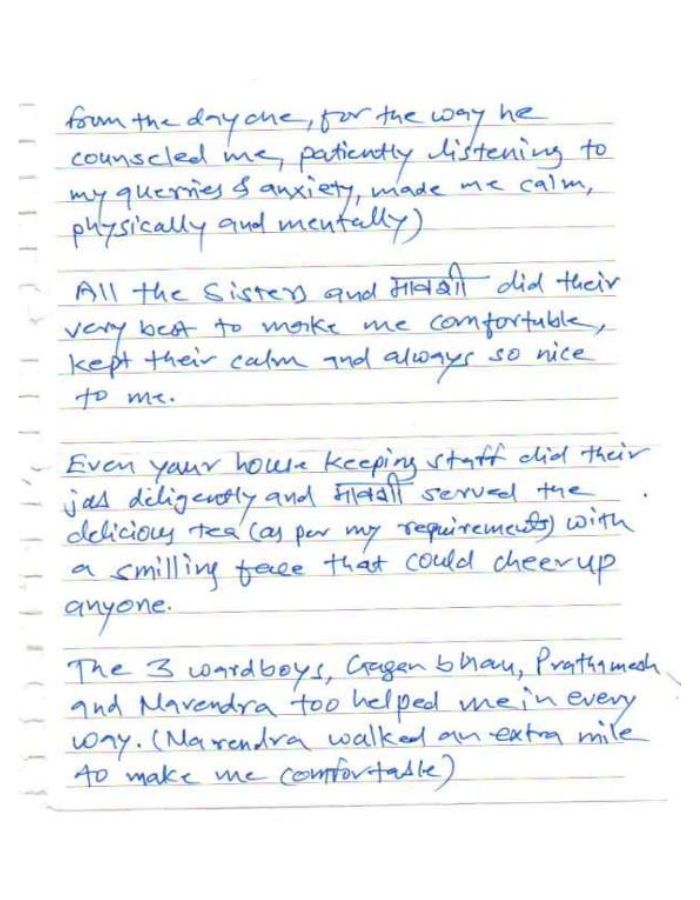 from the day one, for the way he
counseled me, patiently listening to
my querries & anxiety, made me calm,
physically and mentally)
All the Sisters and मावशी did their
very best to make me comfortable,
kept their calm and always so nice
to me.
Even your house keeping staff did their
job diligently and मावशी served the
delicious tea (as per my requirements) with
a smilling face that could cheer up
anyone.
The 3 wardboys, Gagan bhau, Prathamesh
and Narendra too helped me in every
way. (Narendra walked an extra mile
to make me comfortable)